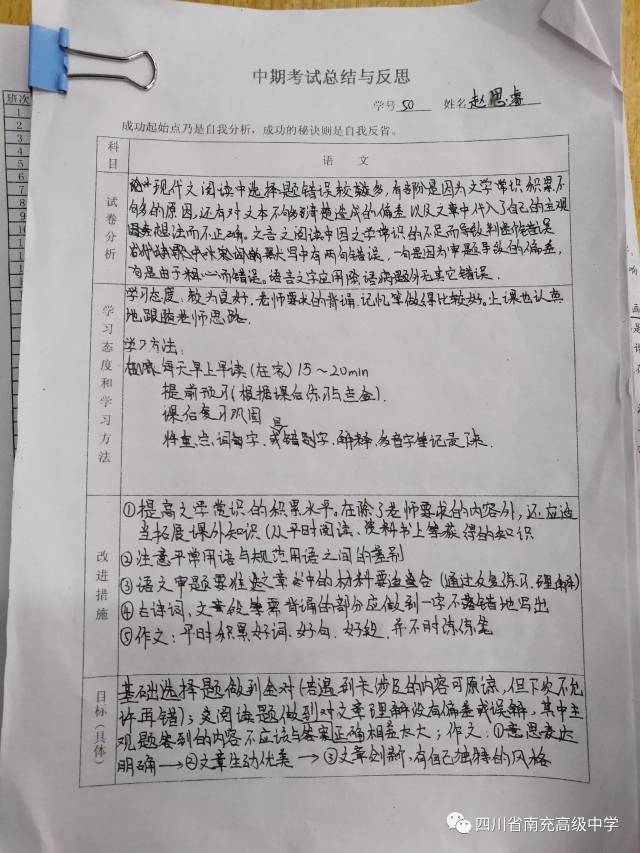 班次
1
1
2
2
3
3
4
4
5
中期考试总结与反思
学号 50 姓名 赵思睿
成功起始点乃是自我分析，成功的秘诀则是自我反省。
科目
语 文
试卷分析
现代文阅读中选择题错误较多，有部份是因为文学常识积累不
够多的原因，还有对文本不够清楚造成的偏差以及文章中代入了自己的主观
想法而不正确。文言文阅读中因文学常识的不足而导致判断错误
默写中有两句错误，一句是因为审题导致的偏差，
一句是由于粗心而错误。语言文字应用除语病题外无其它错误.
学习态度和学习方法
学习态度：较为良好.老师要求的背诵、记忆等做得比较好.上课也认真
地跟随老师思路.
学习方法：
每天早上早读(在家) 15～20min
提前预习(根据课后练习与点金).
课后复习巩固
将重点词句字.或错别字.解释.多音字笔记录下来.
改进措施
①提高文学常识的积累水平.在除了老师要求的内容外，还应该
当拓展课外知识(从平时阅读、资料书上等获得的知识
②注意平常用语与规范用语之间的差别
③语文审题要准，文章当中的材料要迫会 (通过反复练习、理解)
④古诗词、文章段等要背诵的部分应做到一字不落错地写出
⑤作文：平时积累好词.好句.好段.并不时练练笔
目标(具体)
基础选择题做到全对(若遇到未涉及的内容可原谅，但下次不允
许再错)；阅读题做到对文章理解没有偏差或误解，其中主
观题答到的内容不应该与答案正确相差太大；作文：①意思表达
明确→②文章生动优美→③文章创新，有自己独特的风格
四川省南充高级中学